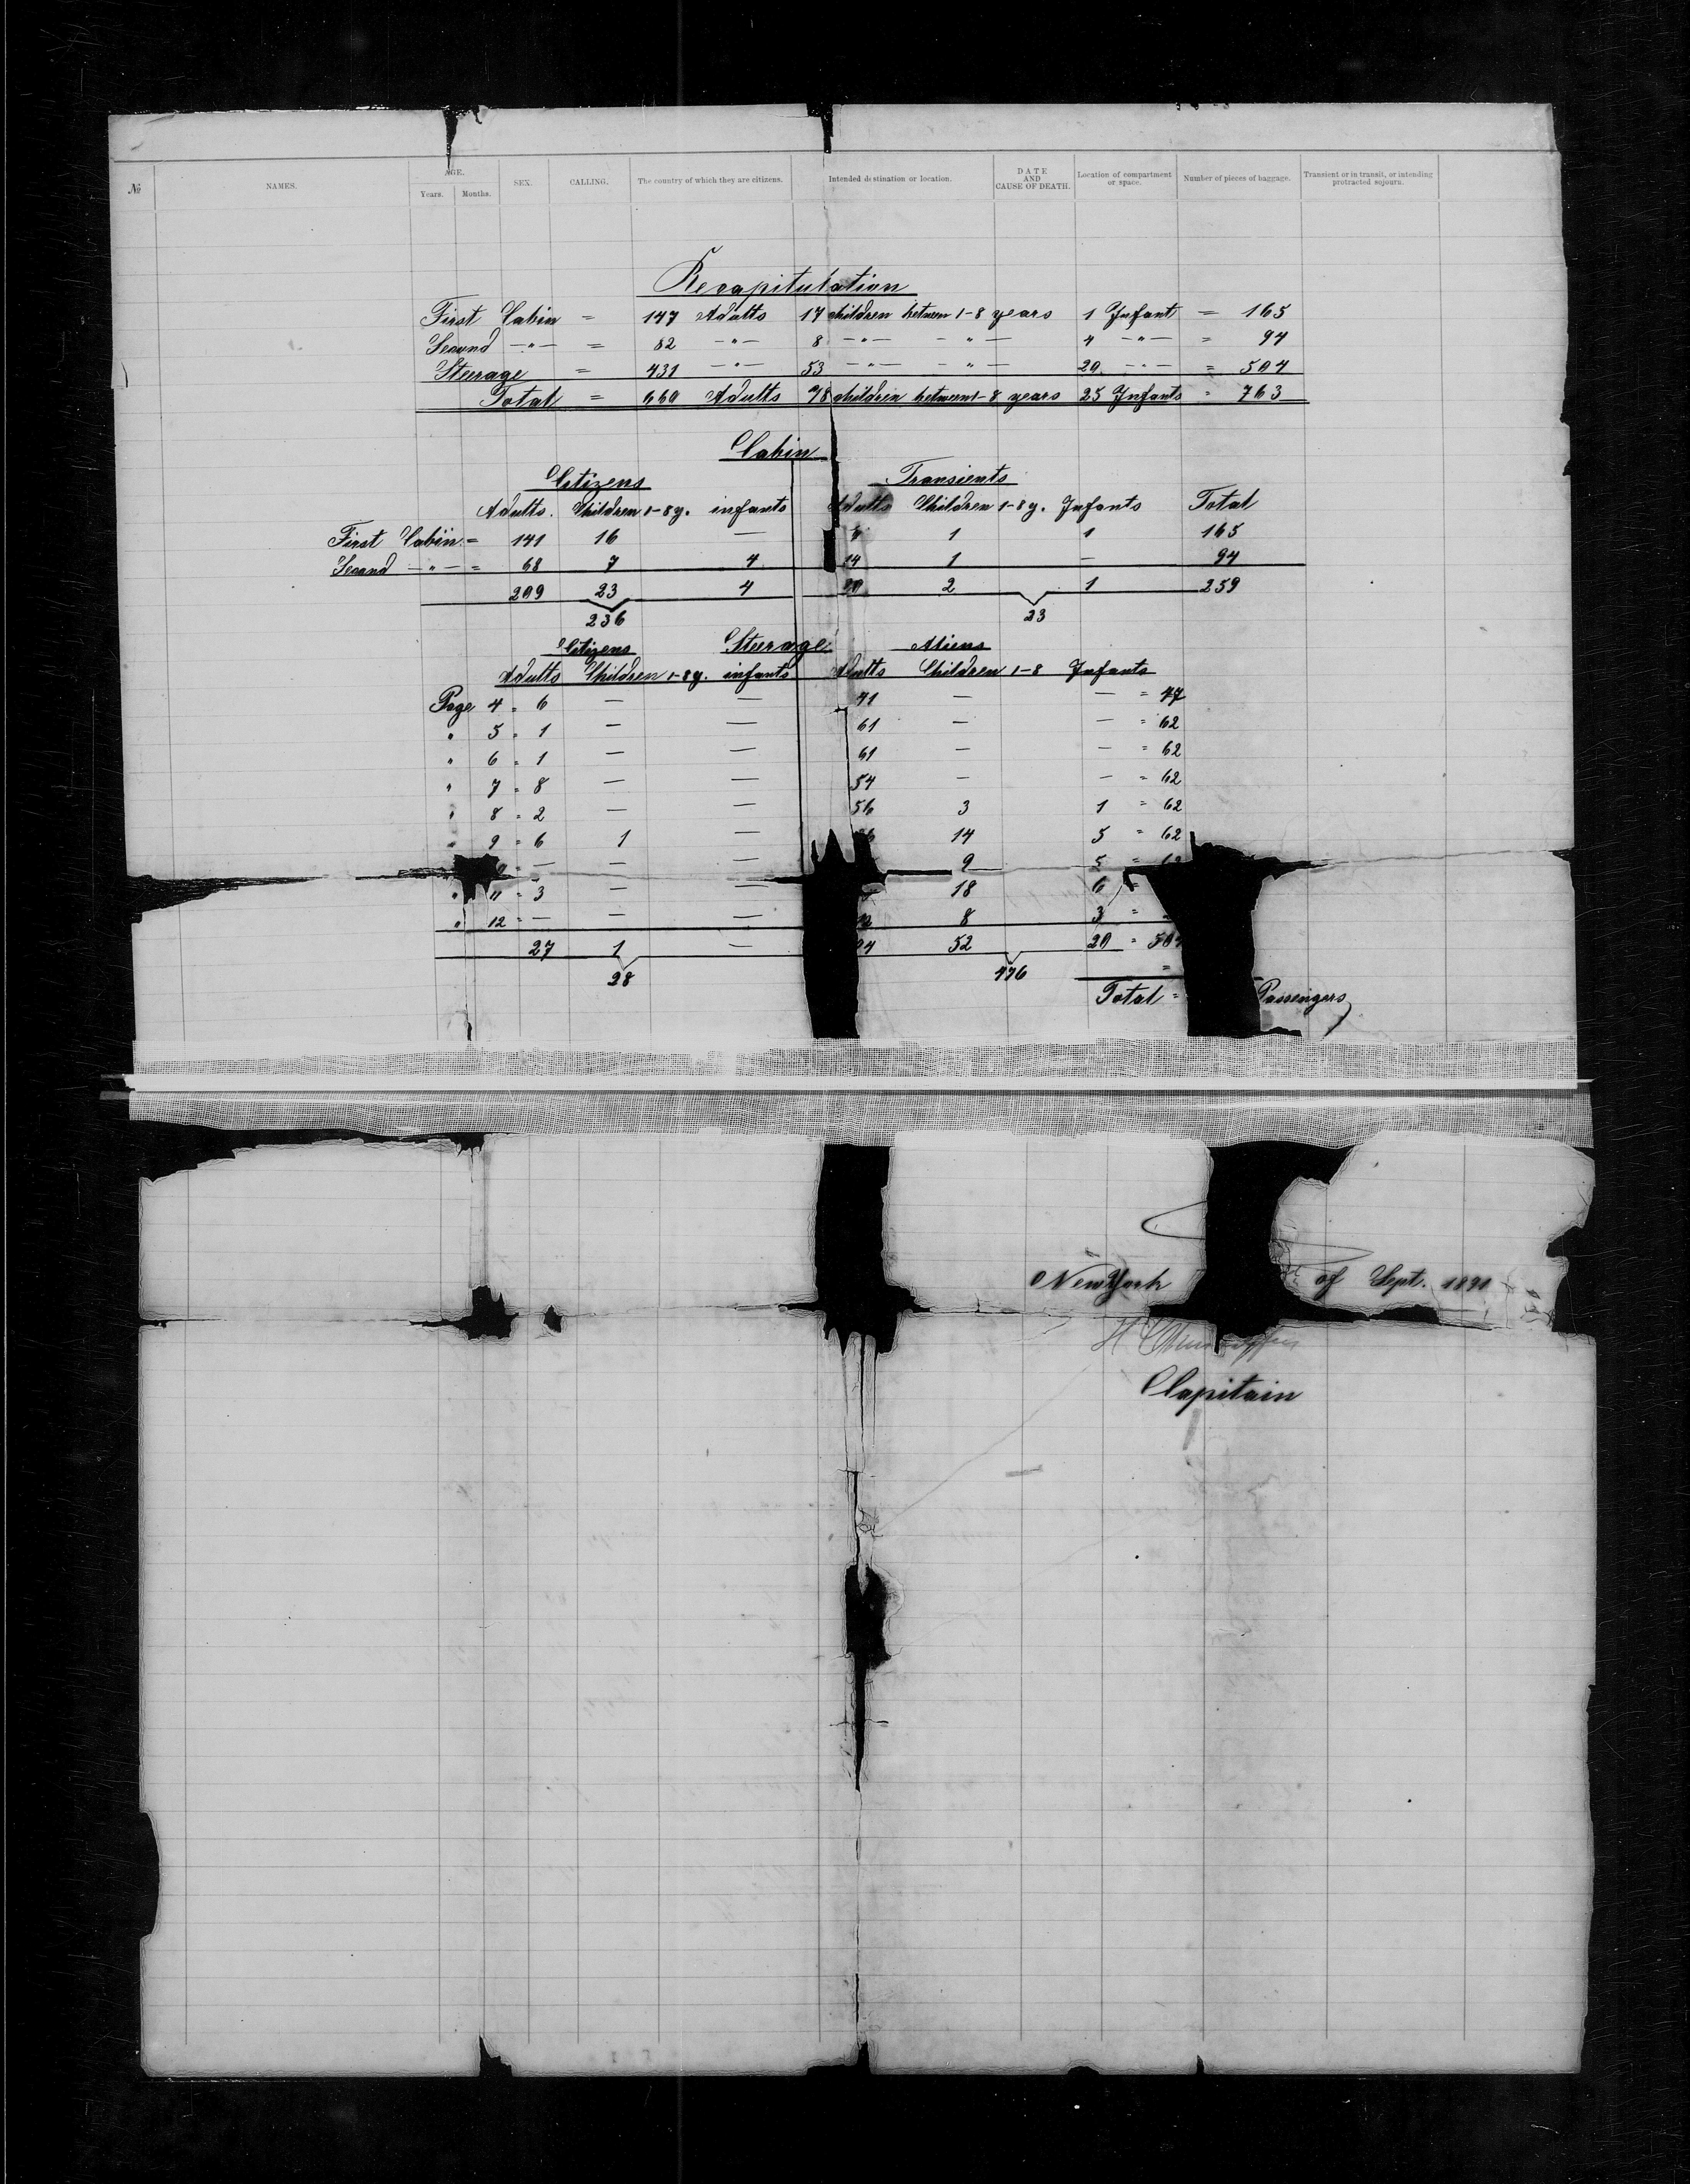 № NAMES. AGE. Years. Months. SEX. CALLING. The country of which they are citizens. Intended destination or location. DATE AND CAUSE OF DEATH. Location of compartment or space. Number of pieces of baggage. Transient or in transit, or intending protracted sojourn.
Recapitulation
First Cabin = 147 Adults 17 children between 1-8 years 1 Infant = 165
Second —"— = 82 —"— 8 —"— —"— 4 —"— = 94
Steerage = 431 —"— 53 —"— —"— 20 —"— = 504
Total = 660 Adults 78 children between 1-8 years 25 Infants = 763
Cabin
Citizens Transients
Adults. Children 1-8 y. infants Adults Children 1-8 y. Infants Total
First Cabin = 141 16 — 6 1 1 165
Second —"— = 68 7 4 14 1 — 94
209 23 4 20 2 1 259
236 23
Citizens Steerage Aliens
Adults Children 1-8 y. infants Adults Children 1-8 Infants
Page 4 = 6 — — 41 — — = 47
" 5 = 1 — — 61 — — = 62
" 6 = 1 — — 61 — — = 62
" 7 = 8 — — 54 — — = 62
" 8 = 2 — — 56 3 1 = 62
" 9 = 6 1 — 14 5 = 62
= — — — 9 5 = 62
" 11 = 3 — — 18 6
" 12 = — — — 8 3 =
27 1 — 52 20 = 504
28 476 =
Total = Passengers
New York of Sept. 1891
H
Capitain